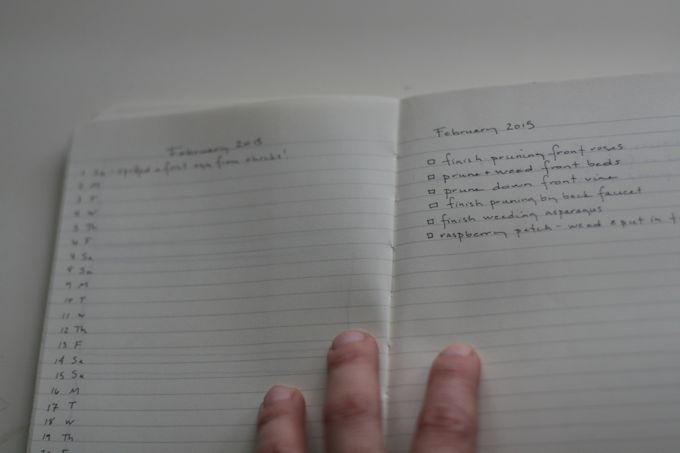 February 2015
1 Su first egg from chicks!
2 M
3 T
4 W
5 Th
6 F
7 Sa
8 Su
9 M
10 T
11 W
12 Th
13 F
14 Sa
15 Su
16 M
17 T
18 W
19 Th
February 2015
finish pruning front roses
prune + weed front beds
prune down front vine
finish pruning by back faucet
finish weeding asparagus
raspberry patch - weed & put in